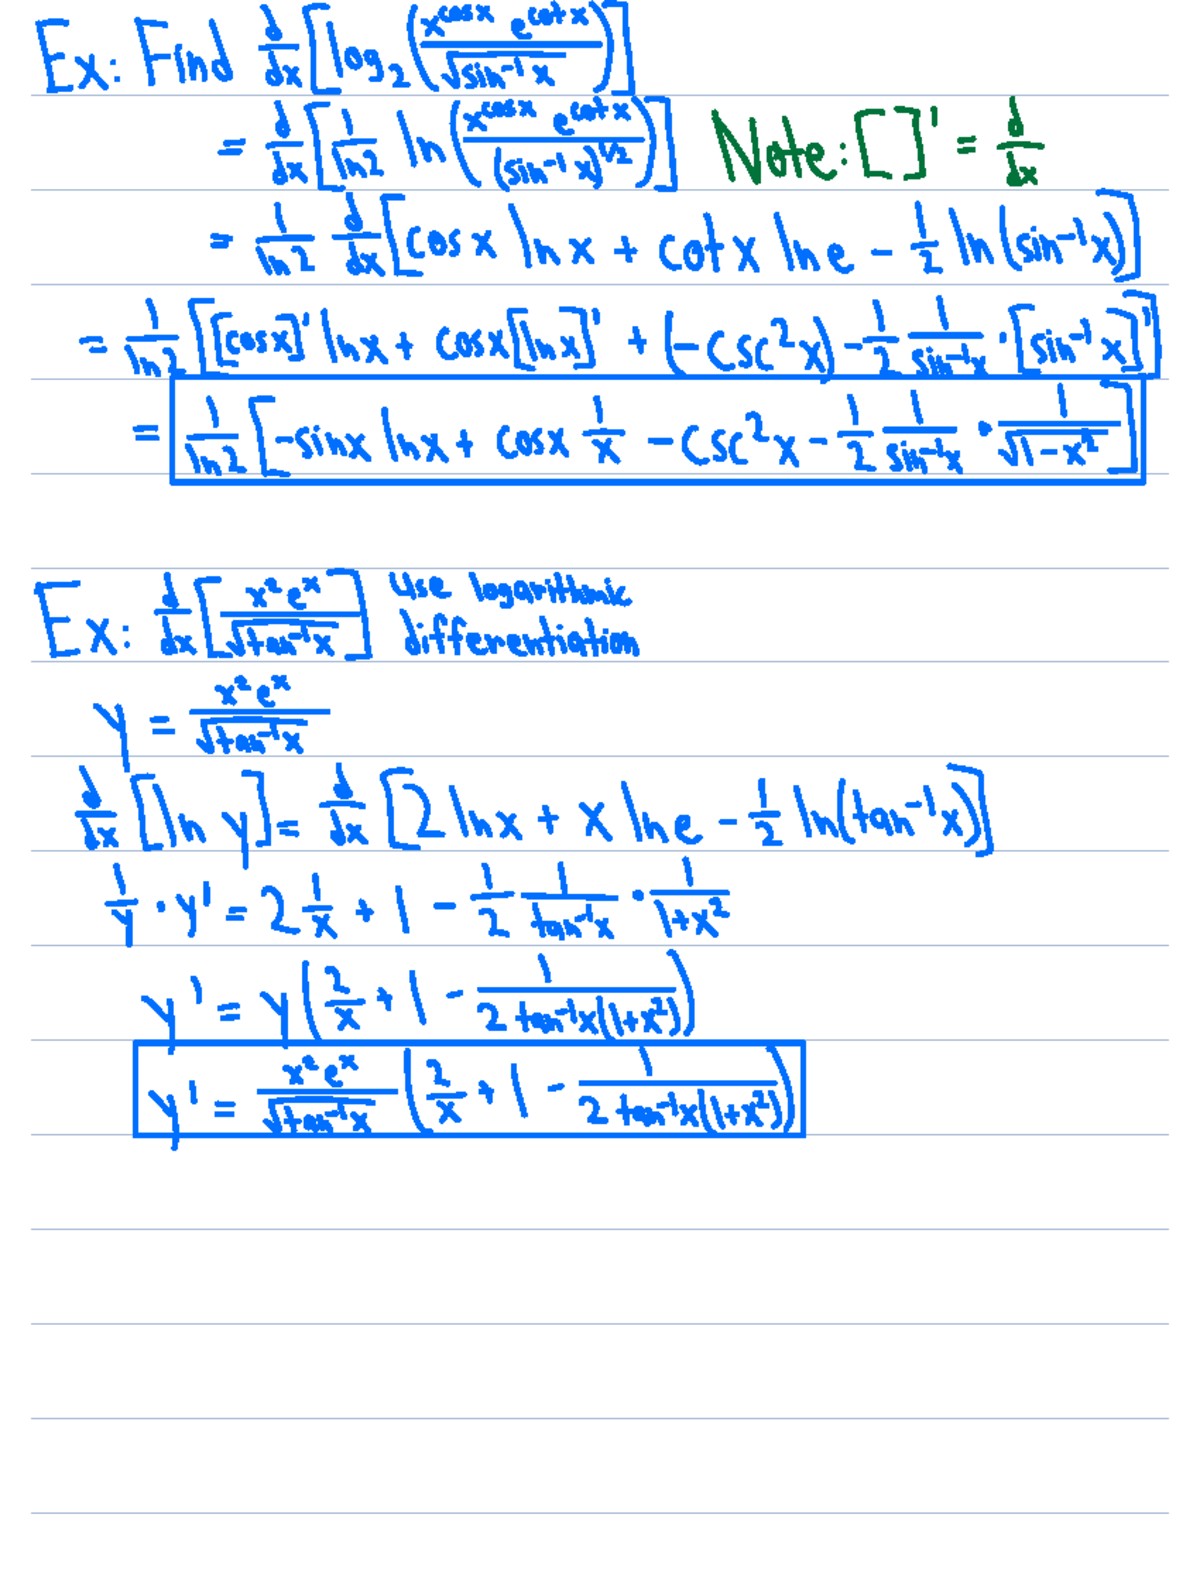 Ex: Find d/dx [log₂((x^(cos x) e^(cot x))/√(sin⁻¹ x))]
= d/dx [1/ln2 ln((x^(cos x) e^(cot x))/(sin⁻¹ x)^(1/2))] Note: [ ]' = d/dx
= 1/ln2 d/dx [cos x ln x + cot x ln e - 1/2 ln(sin⁻¹x)]
= 1/ln2 [[cos x]' ln x + cos x [ln x]' + (-csc²x) - 1/2 1/(sin⁻¹x) · [sin⁻¹x]']
= 1/ln2 [-sin x ln x + cos x 1/x - csc²x - 1/2 1/(sin⁻¹x) · 1/√(1-x²)]
Ex: d/dx [(x²eˣ)/√(tan⁻¹x)] Use logarithmic differentiation
y = (x²eˣ)/√(tan⁻¹x)
d/dx [ln y] = d/dx [2 ln x + x ln e - 1/2 ln(tan⁻¹x)]
1/y · y' = 2 1/x + 1 - 1/2 1/(tan⁻¹x) · 1/(1+x²)
y' = y(2/x + 1 - 1/(2 tan⁻¹x(1+x²)))
y' = (x²eˣ)/√(tan⁻¹x) (2/x + 1 - 1/(2 tan⁻¹x(1+x²)))